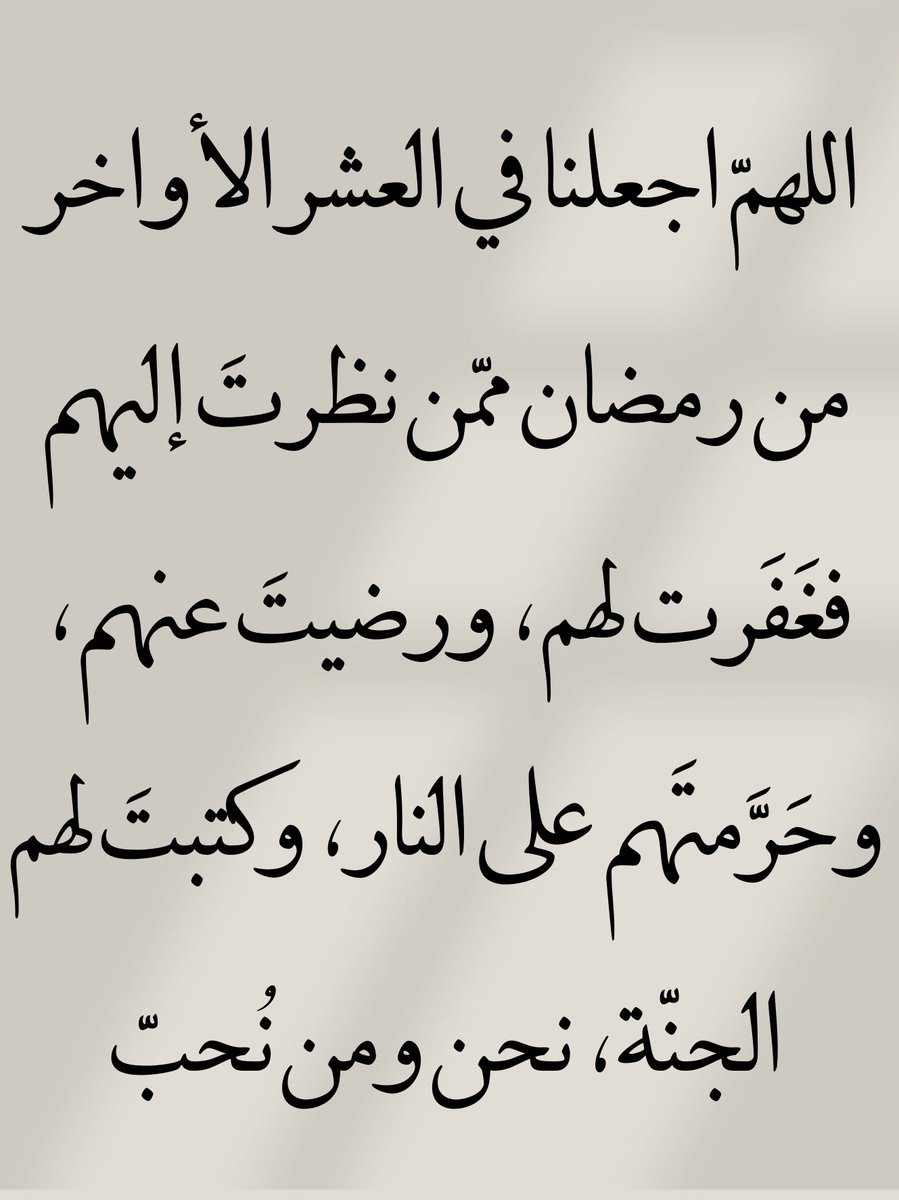 اللهمّ اجعلنا في العشر الأواخر
من رمضان ممّن نظرتَ إليهم
فغَفَرت لهم، ورضيتَ عنهم،
وحَرَّمتَهم على النار، وكتبتَ لهم
الجنّة، نحن ومن نُحبّ